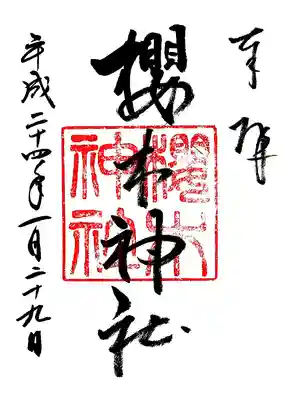 奉拝
櫻木神社
櫻木神社
平成二十四年一月二十九日